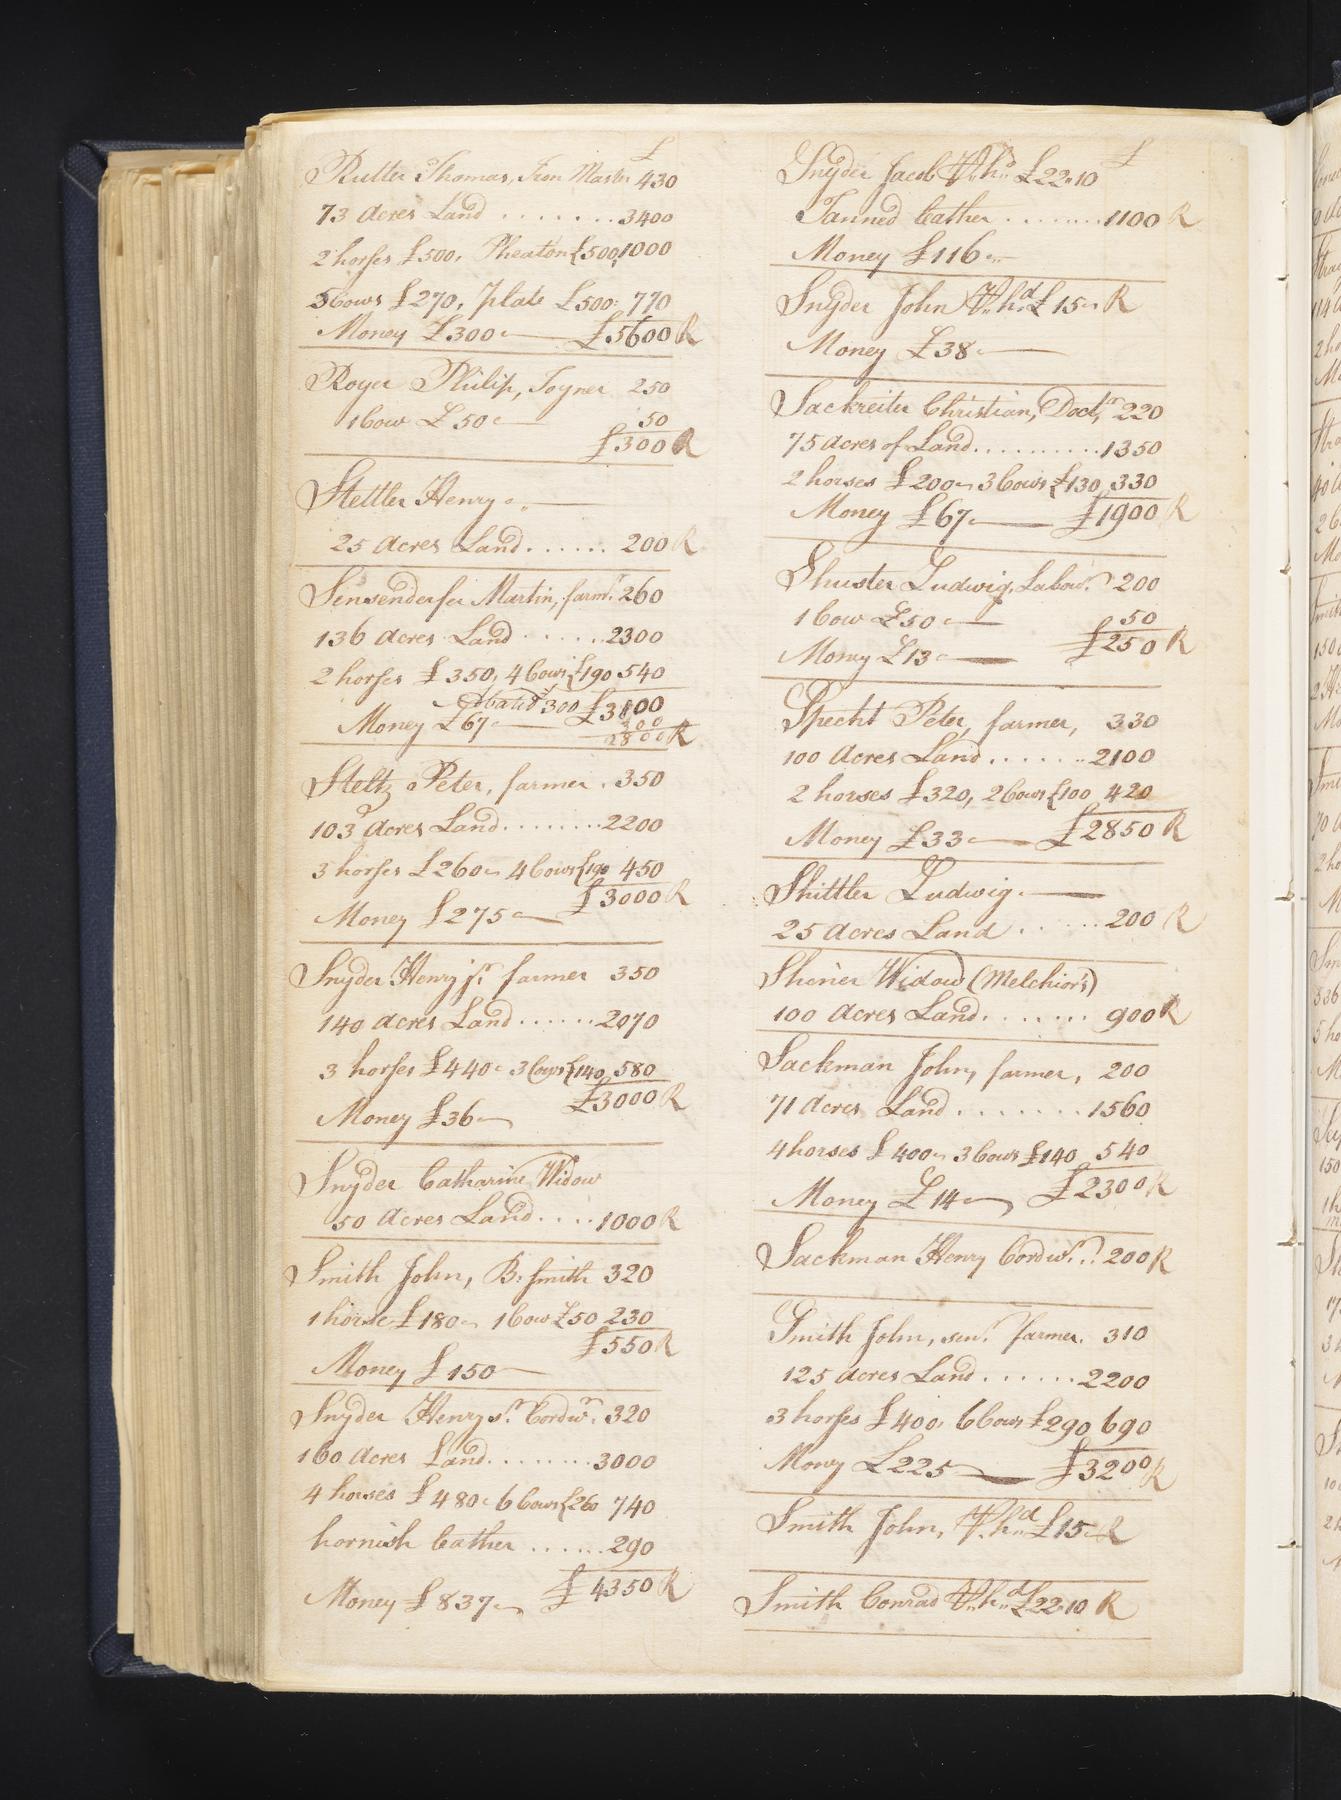 £
Rutter Thomas, Iron Master 430
73 Acres Land ........ 3400
2 horses £500, Pheaton £500, 1000
5 Cows £270, plate £500: 770
Money £300 — £5600 R
Royer Philip, Joyner 250
1 Cow £50 — 50
£300 R
Stettler Henry —
25 Acres Land ...... 200 R
Sensenderfer Martin, farmr. 260
136 Acres Land ...... 2300
2 horses £350, 4 Cows £190 540
Abated 300 £3100
Money £67 — 300
2800 R
Steltz Peter, farmer . 350
103 Acres Land ......... 2200
3 horses £260 4 Cows £190 450
£3000 R
Money £275 —
Snyder Henry jr. farmer 350
140 Acres Land ...... 2070
3 horses £440 3 Cows £140, 580
£3000 R
Money £36
Snyder Catharine Widow
50 Acres Land .... 1000 R
Smith John, B. Smith 320
1 horse £180 1 Cow £50 230
£550 R
Money £150 —
Snyder Henry sr. Cordwr. 320
160 Acres Land ......... 3000
4 horses £480 6 Cows £260 740
hornish leather ...... 290
Money £837 £4350 R
£
Snyder Jacob Pr. hd. £22"10
Tanned leather ........ 1100 R
Money £116
Snyder John Pr. hd. £15 R
Money £38 —
Sackreiter Christian, Doctr. 220
75 Acres of Land .......... 1350
2 horses £200 3 Cows £130, 330
Money £67 — £1900 R
Shuster Ludwig, Labour. 200
1 Cow £50 — 50
£250 R
Money £13 —
Specht Peter, farmer, 330
100 Acres Land ....... 2100
2 horses £320, 2 Cows £100 420
Money £33 — £2850 R
Shittler Ludwig —
25 Acres Land ...... 200 R
Shener Widow (Melchior's)
100 Acres Land ....... 900 R
Sackman John, farmer, 200
71 Acres Land ........ 1560
4 horses £400 3 Cows £140, 540
Money £14 £2300 R
Sackman Henry Cordwr. .. 200 R
Smith John, senr. farmer. 310
125 Acres Land ...... 2200
3 horses £400, 6 Cows £290 690
Money £225 — £3200 R
Smith John, Pr. hd. £15 R
Smith Conrad Pr. hd. £22"10 R